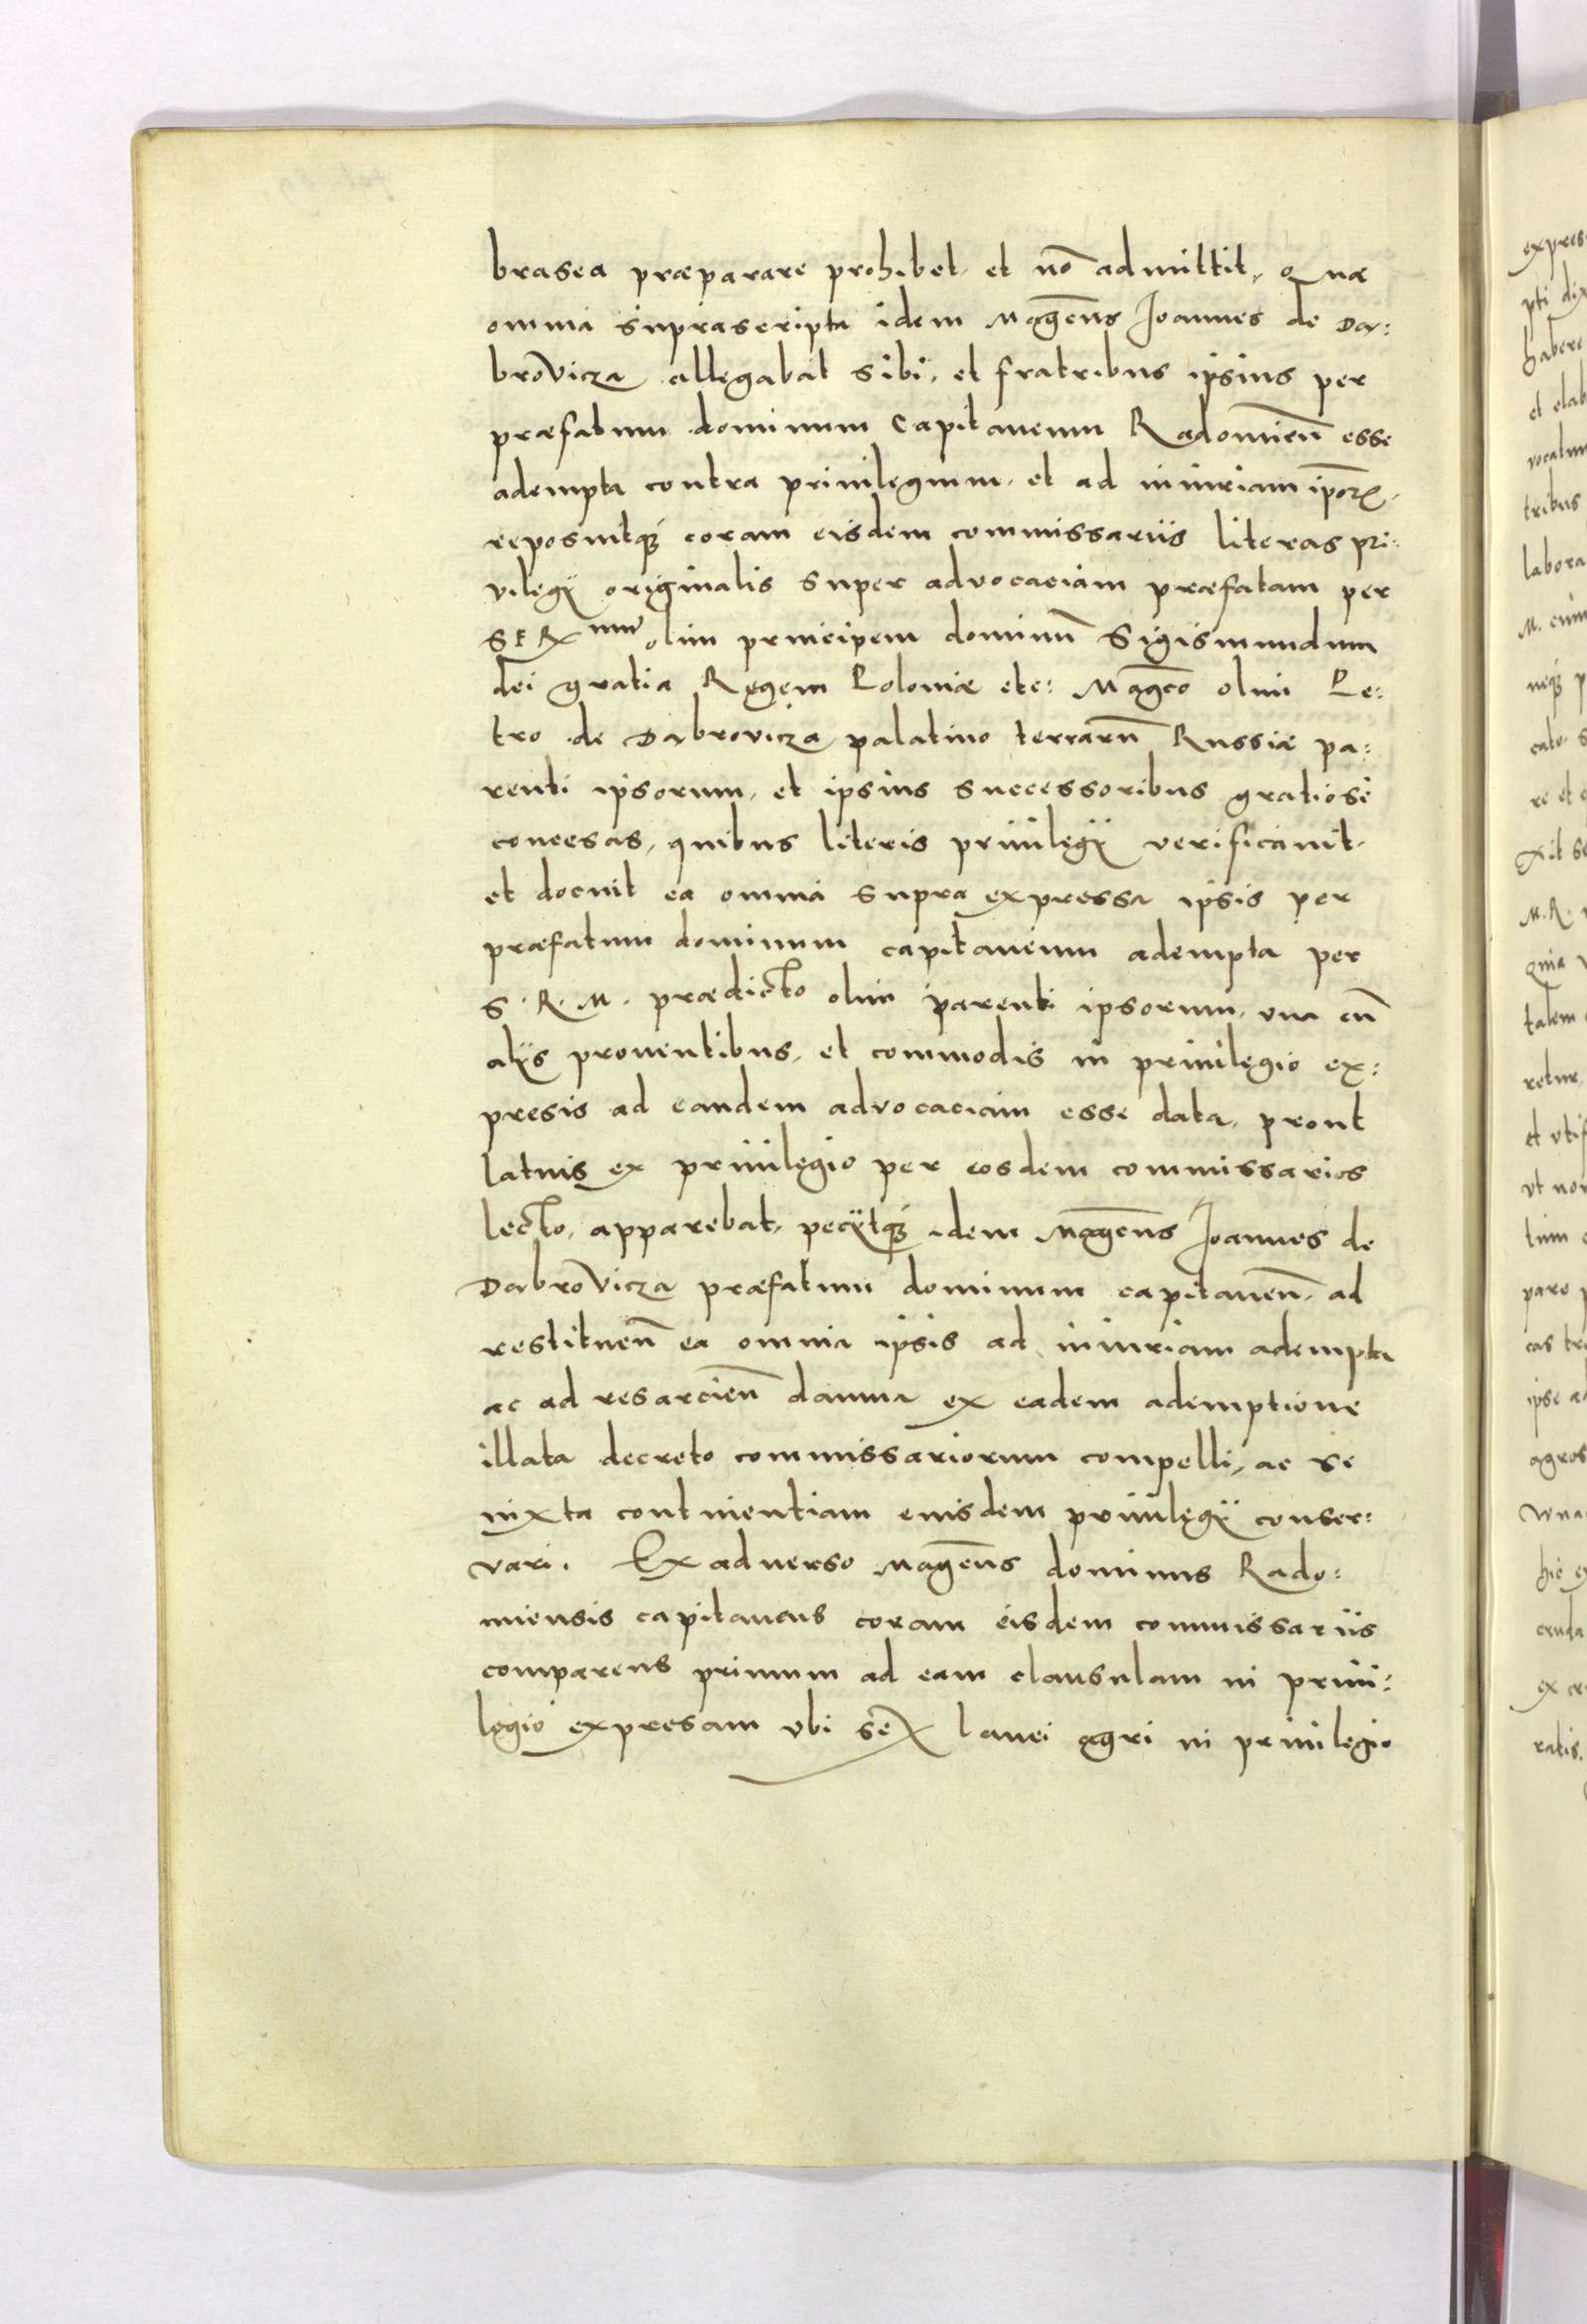 brasea præparare prohibet, et nō admittit, Quæ
omnia suprascripta idem Magc̄us Joannes de Da:
brovicza allegabat sibi, et fratribus ipsius per
præfatum dominum Capitaneum Radomień esse
adempta contra priuilegium, et ad iniuriam ipōrꝫ.
reposuitqꝫ coram eisdem commissariis literas pri:
vilegij originalis super advocaciam præfatam per
SERmum olim principem dominū Sigismundum
dei gratia Regem Poloniæ etc: Magc̄o olim Pe:
tro de Dabrovicza palatino terrarū Russiæ pa:
renti ipsorum, et ipsius successoribus gratiose
concesas, quibus literis priuilegij verificauit,
et docuit ea omnia supra expressa ipsis per
præfatum dominum capitaneum adempta per
S. R. M. prædicto olim parenti ipsorum, una cū
alijs prouentibus, et commodis in priuilegio ex:
presis ad eandem advocaciam esse data, prout
latius ex priuilegio per eosdem commissarios
lecto, apparebat, pecijtqꝫ idem Magc̄us Joannes de
Dabrovicza præfatum dominum capitaneū, ad
restitueñ ea omnia ipsis ad iniuriam adempta
ac ad resarcieñ damna ex eadem ademptione
illata decreto commissariorum compelli, ac se
iuxta continentiam eiusdem priuilegij conser:
vari. Ex aduerso Magc̄us dominus Rado:
miensis capitaneus coram eisdem commissariis
comparens primum ad eam clausulam in priui:
legio expresam ubi sex lanei agri in priuilegio